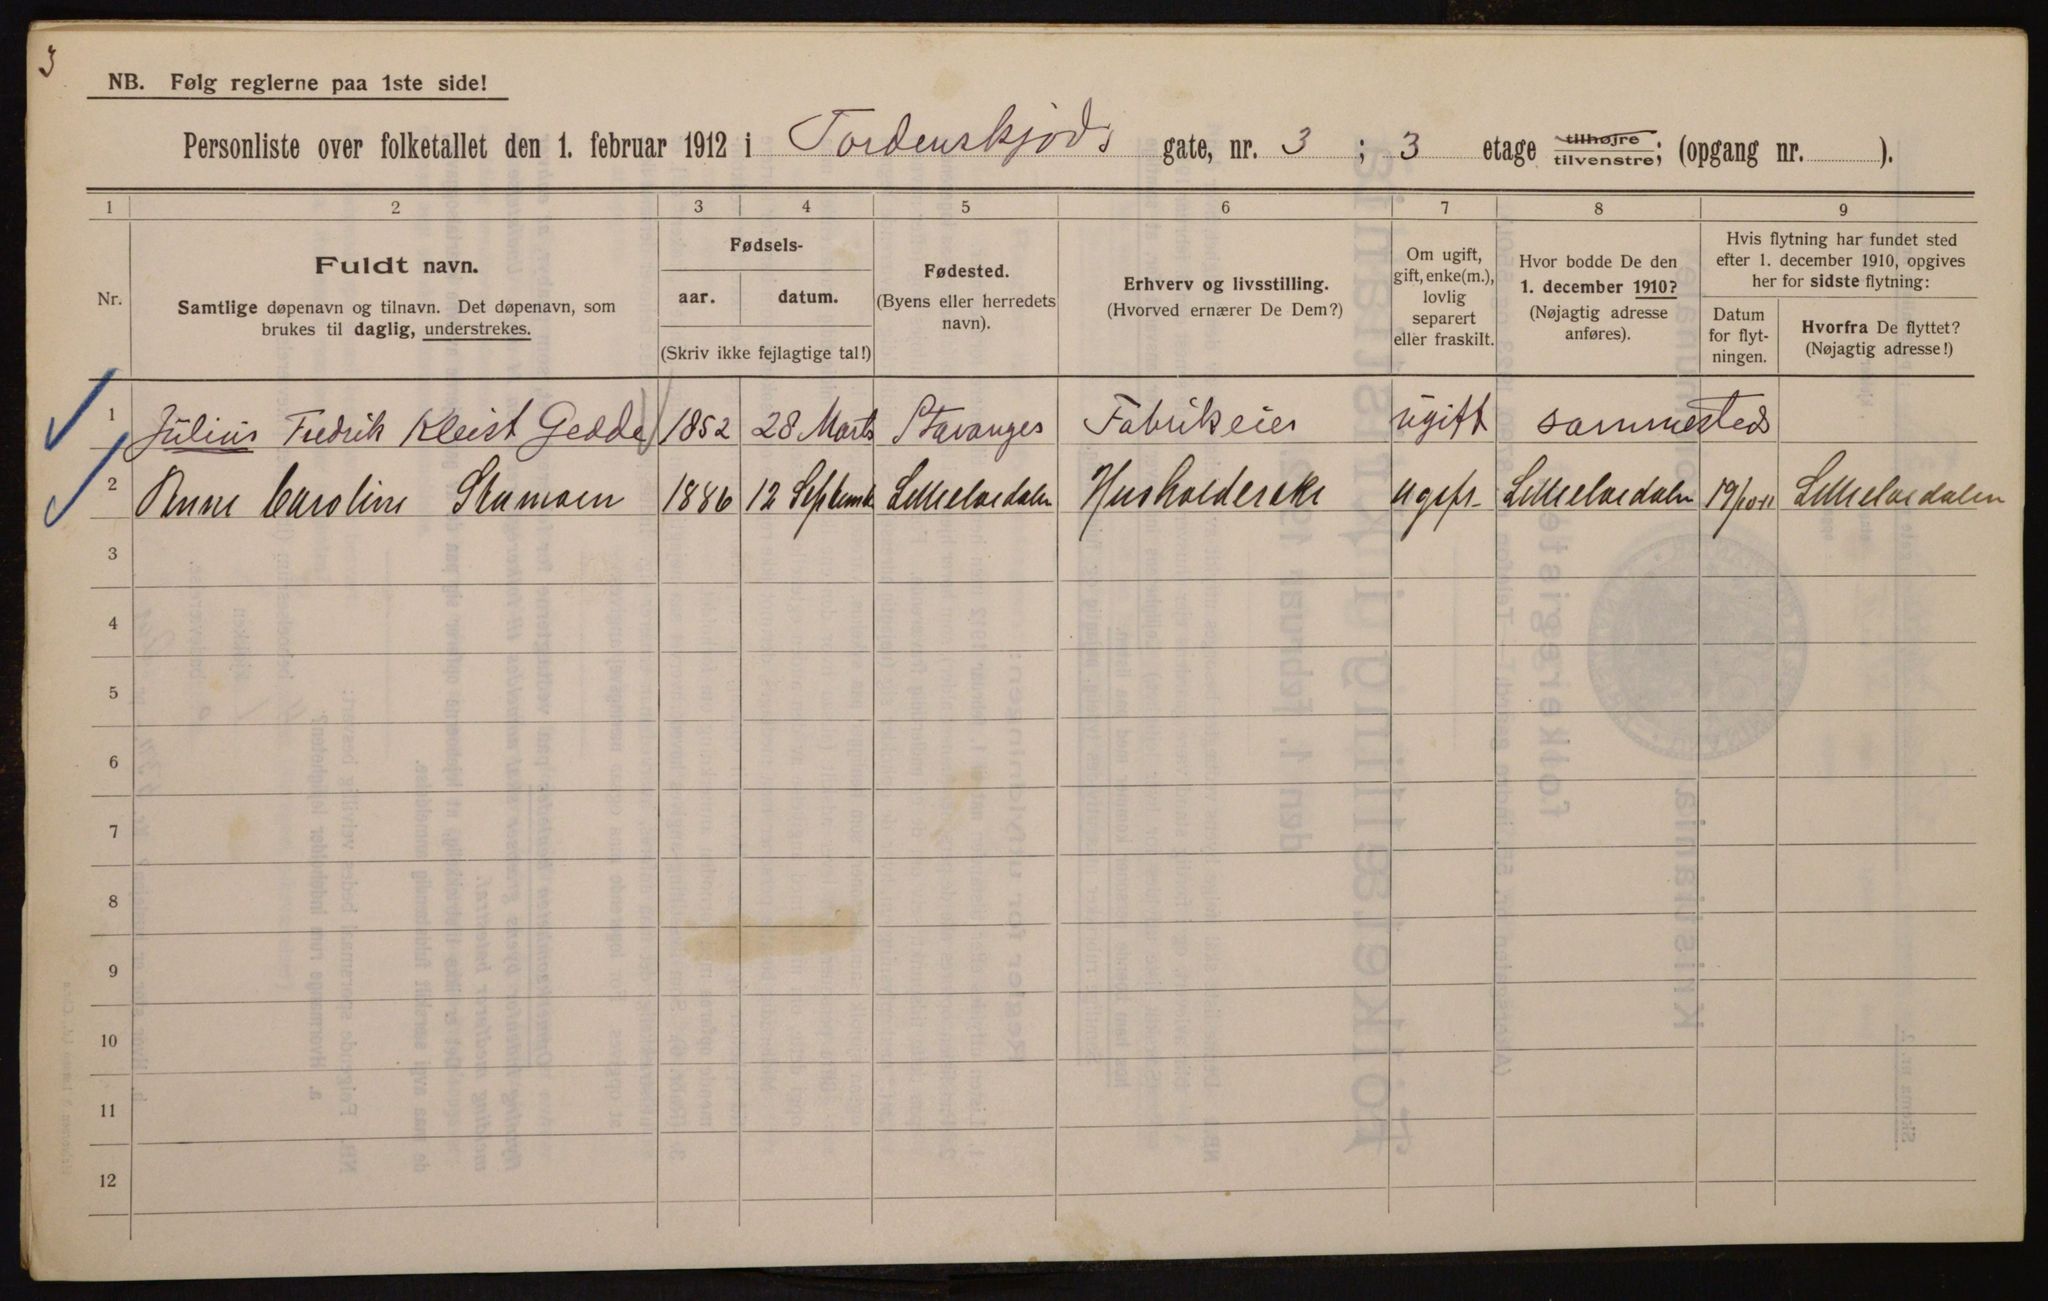 3
NB. Følg reglerne paa 1ste side!
Personliste over folketallet den 1. februar 1912 i Tordenskjods gate, nr. 3 ; 3 etage tilhøjre / tilvenstre; (opgang nr. ).
1 2 3 4 5 6 7 8 9
Nr.
Fuldt navn.
Samtlige døpenavn og tilnavn. Det døpenavn, som
brukes til daglig, understrekes.
Fødsels-
aar. datum.
(Skriv ikke fejlagtige tal!)
Fødested.
(Byens eller herredets
navn).
Erhverv og livsstilling.
(Hvorved ernærer De Dem?)
Om ugift,
gift, enke(m.),
lovlig
separert
eller fraskilt.
Hvor bodde De den
1. december 1910?
(Nøjagtig adresse
anføres).
Hvis flytning har fundet sted
efter 1. december 1910, opgives
her for sidste flytning:
Datum
for flyt-
ningen.
Hvorfra De flyttet?
(Nøjagtig adresse!)
1 Julius Fredrik Kleist Gedde 1852 28 Marts Stavanger Fabrikeier ugift sammesteds
2 Anne Caroline 1886 12 Septembr Lilleelvedalen Husholderske ugift Lilleelvedalen 19/10 11 Lilleelvedalen
3
4
5
6
7
8
9
10
11
12